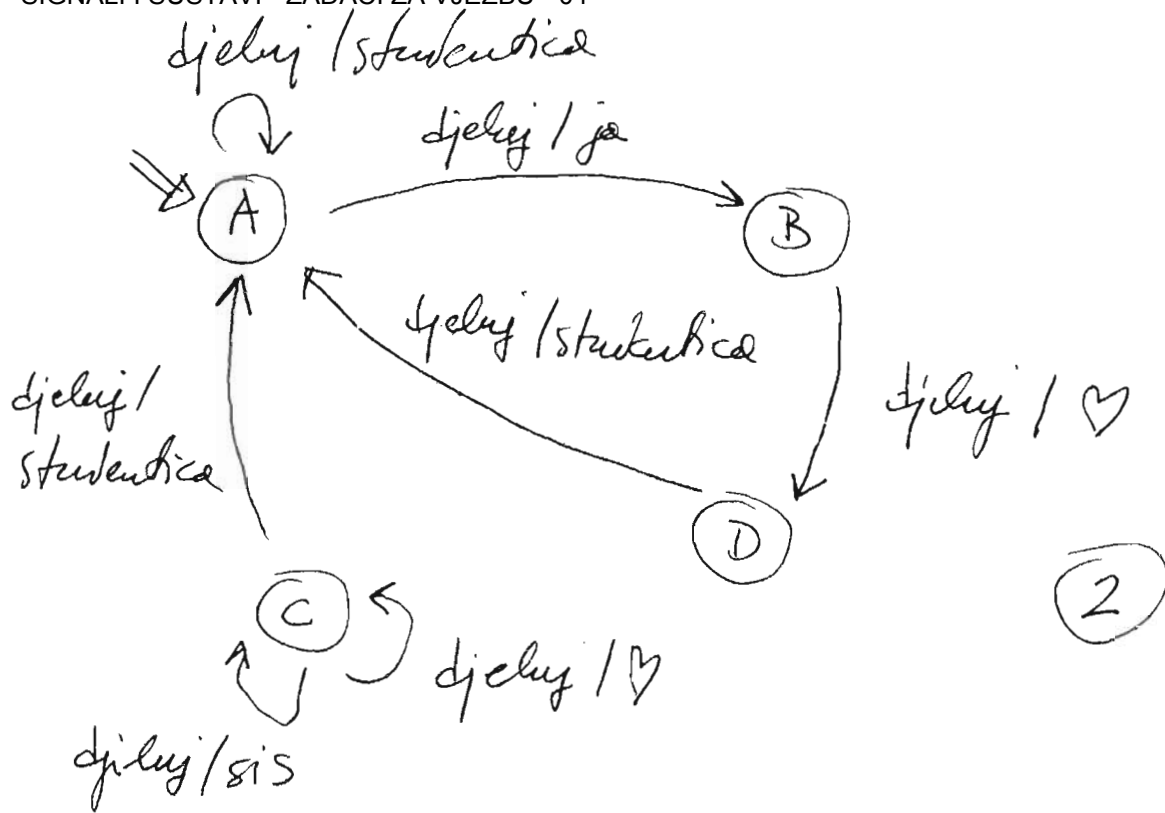 djeluj / studentica
djeluj / ja
A
B
djeluj / studentica
djeluj /
studentica
djeluj / ♡
D
C
2
djeluj / ♡
djeluj / sis